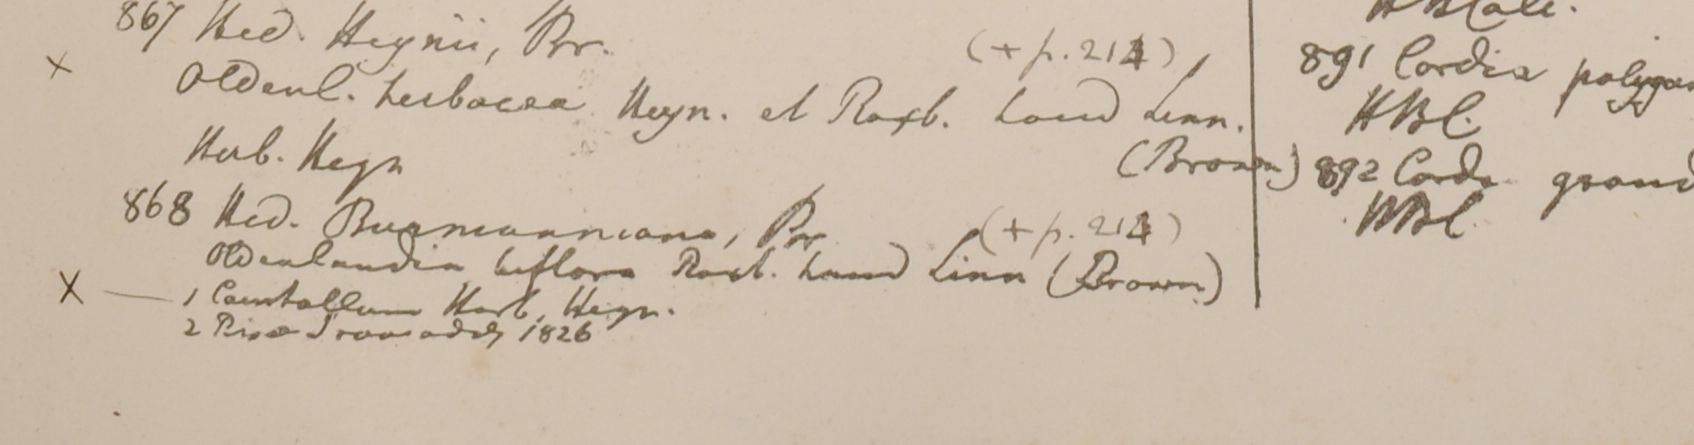 867 Hed. Heynii, Br. (+ p. 214)
Oldenl. herbacea Heyn. et Roxb. haud Linn.
(Brown)
Herb. Heyn
868 Hed. Burmanniana, Br (+ p. 214)
Oldenlandia biflora Roxb. haud Linn (Brown)
1 Courtallum Herb. Heyn.
2 Ripae Irawaddy 1826
891 Cordia polygam
HBC.
892 Cordia grand
HBC.